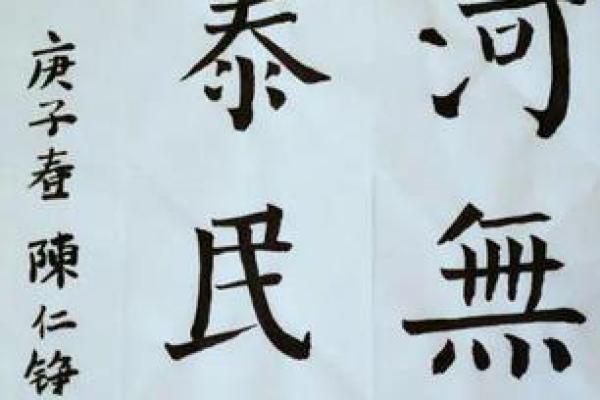 河無
泰民
庚子春 陳仁錚